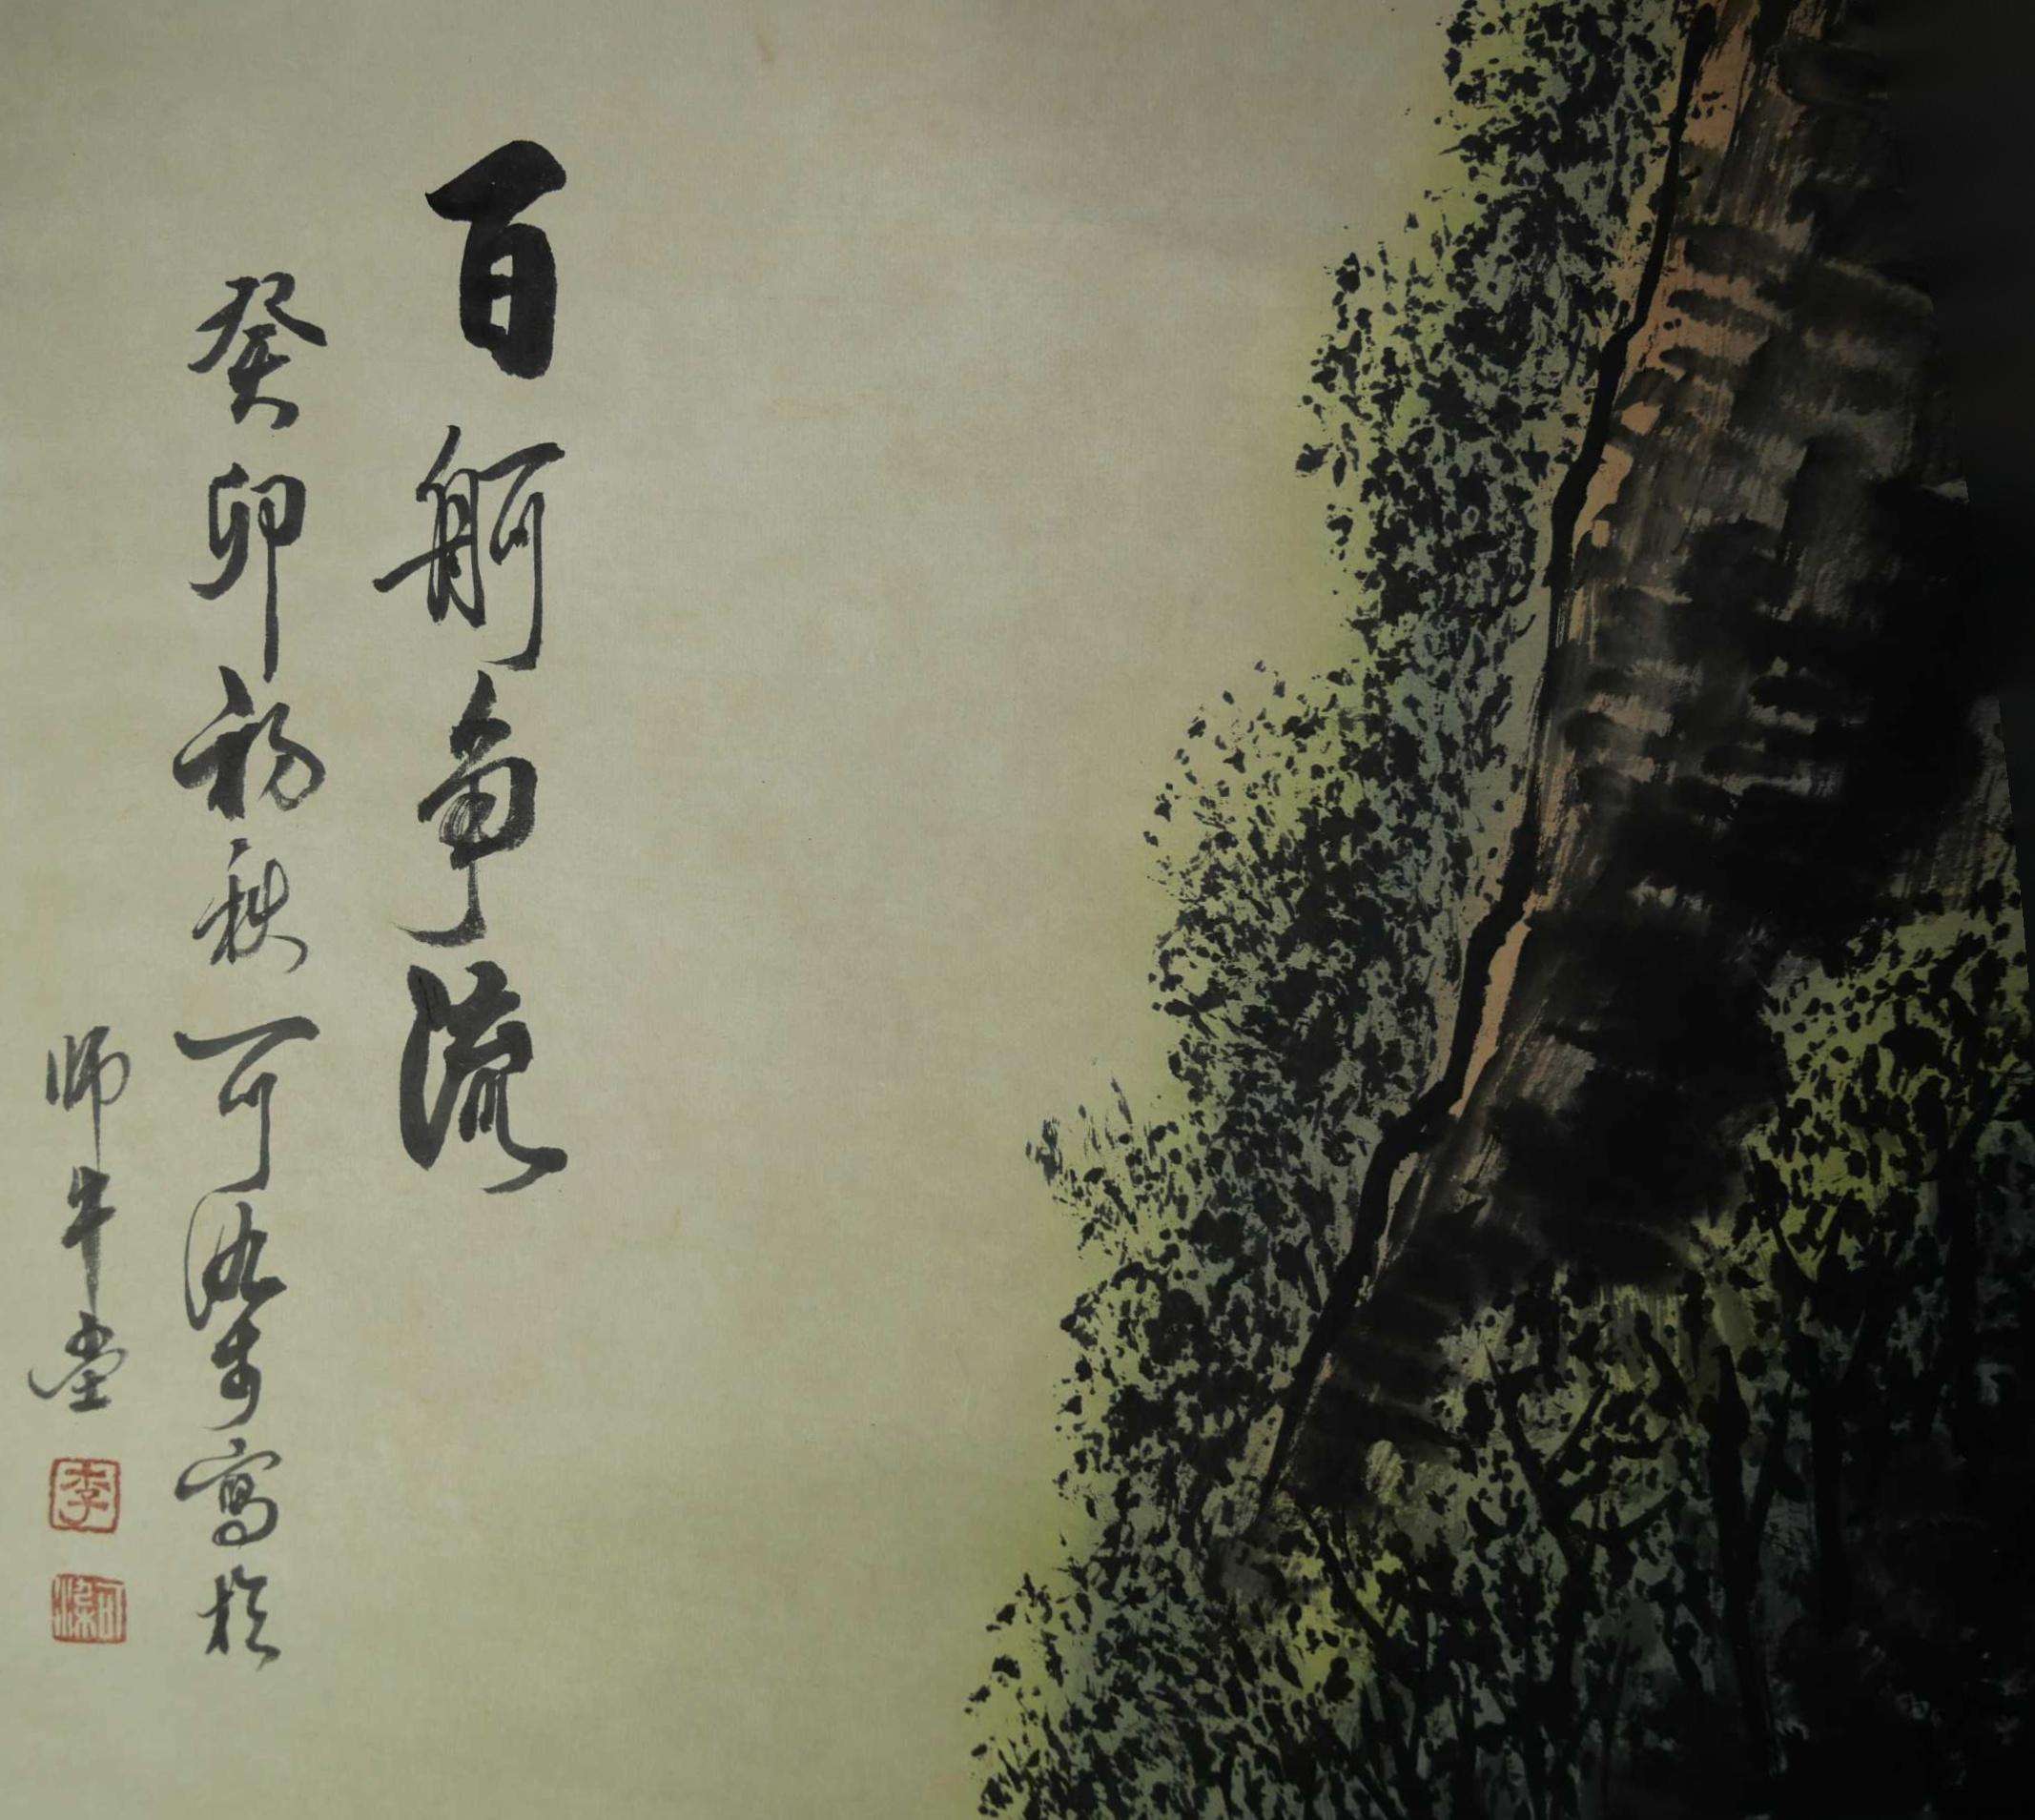 百舸争流
癸卯初秋可染寫於
师牛堂
李
可染